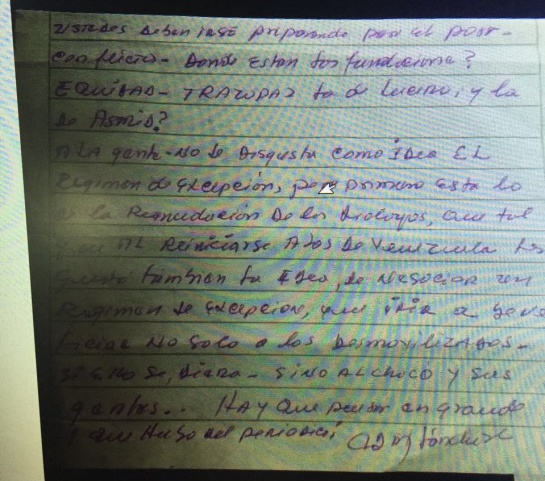 ustedes deben irse preparando para el post-
conflicto- Donde estan las fundaciones?
EQUIDAD- TRAZUPAZ la de Lucero, y la
de Asmid?
A LA gente- NO le Disgusta como IDea EL
Regimen de excepción, pero primero esta lo
de la Reanudación De los Dialogos, que tal
que AL Reiniciarse Alos De Venezuela les
guste tambien la IDea, de negociar un
Regimen de excepcion, que iria a bene
ficiar NO Solo a los Desmovilizados-
SINO AL CHOCO y sus
gentes... HAY Que pensar en grande